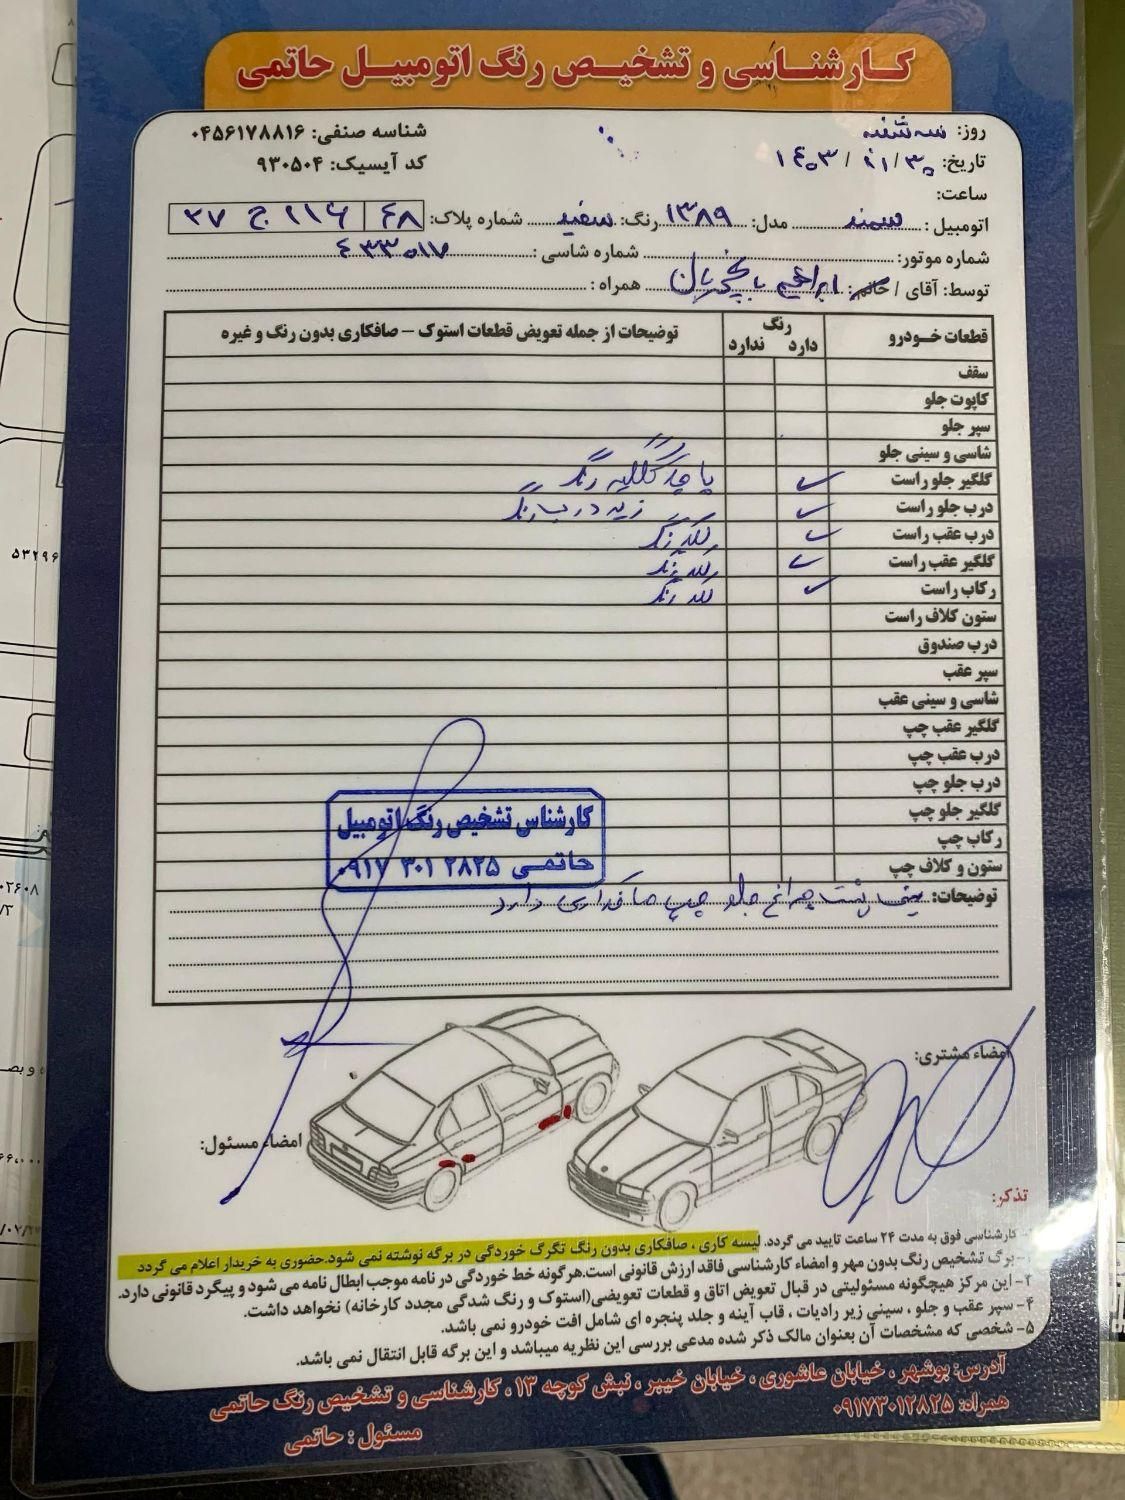 کارشناسی و تشخیص رنگ اتومبیل حاتمی
روز: سه شنبه
شناسه صنفی: ۰۴۵۶۱۷۸۸۱۶
تاریخ: ۱۴۰۳/۰۱/۳۰
کد آیسیک: ۹۳۰۵۰۴
ساعت:
اتومبیل: سمند مدل: ۱۳۸۹ رنگ: سفید شماره پلاک: ۴۸ ۲۱۶ ج ۳۷
شماره موتور: شماره شاسی: ۴۳۳۰۱۷
توسط: آقای / خانم: ابراهیم همراه:
قطعات خودرو رنگ دارد ندارد توضیحات از جمله تعویض قطعات استوک – صافکاری بدون رنگ و غیره
سقف
کاپوت جلو
سپر جلو
شاسی و سینی جلو
گلگیر جلو راست رنگ
درب جلو راست زیر درب رنگ
درب عقب راست لکه رنگ
گلگیر عقب راست لکه رنگ
رکاب راست لکه رنگ
ستون کلاف راست
درب صندوق
سپر عقب
شاسی و سینی عقب
گلگیر عقب چپ
درب عقب چپ
درب جلو چپ
گلگیر جلو چپ
رکاب چپ
ستون و کلاف چپ
کارشناس تشخیص رنگ اتومبیل
حاتمی ۰۹۱۷ ۳۰۱ ۲۸۲۵
توضیحات: سینی پشت چراغ جلو چپ صافکاری دارد
امضاء مشتری:
امضاء مسئول:
تذکر:
۱- کارشناسی فوق به مدت ۲۴ ساعت تایید می گردد. لیسه کاری ، صافکاری بدون رنگ تگرگ خوردگی در برگه نوشته نمی شود.حضوری به خریدار اعلام می گردد
۲- برگ تشخیص رنگ بدون مهر و امضاء کارشناسی فاقد ارزش قانونی است.هرگونه خط خوردگی در نامه موجب ابطال نامه می شود و پیگرد قانونی دارد.
۳- این مرکز هیچگونه مسئولیتی در قبال تعویض اتاق و قطعات تعویضی(استوک و رنگ شدگی مجدد کارخانه) نخواهد داشت.
۴- سپر عقب و جلو ، سینی زیر رادیات ، قاب آینه و جلد پنجره ای شامل افت خودرو نمی باشد.
۵- شخصی که مشخصات آن بعنوان مالک ذکر شده مدعی بررسی این نظریه میباشد و این برگه قابل انتقال نمی باشد.
آدرس: بوشهر ، خیابان عاشوری ، خیابان خیبر ، نبش کوچه ۱۳ ، کارشناسی و تشخیص رنگ حاتمی
همراه: ۰۹۱۷۳۰۱۲۸۲۵
مسئول : حاتمی